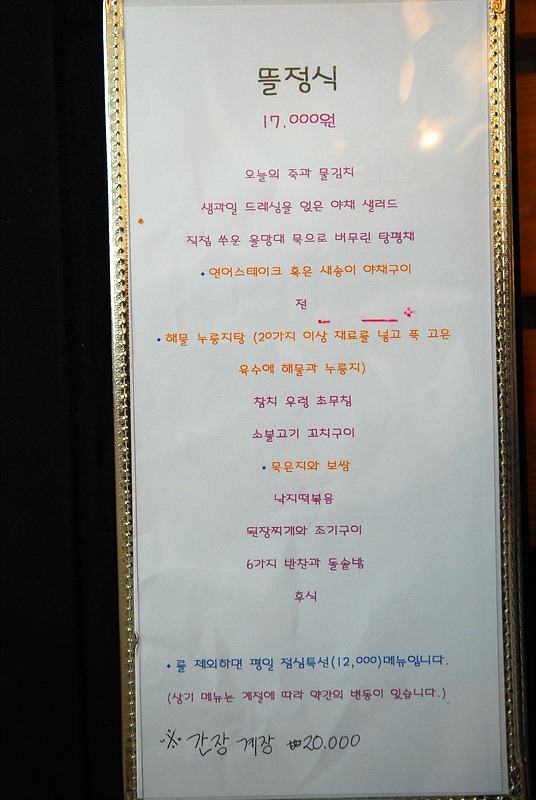 뜰정식
17,000원
오늘의 죽과 물김치
생과일 드레싱을 얹은 야채 샐러드
직접 쑤운 올망대 묵으로 버무린 탕평채
•연어스테이크 혹은 새송이 야채구이
전
•해물 누룽지탕 (20가지 이상 재료를 넣고 푹 고은
육수에 해물과 누룽지)
참치 우렁 초무침
소불고기 꼬치구이
•묵은지와 보쌈
낙지떡볶음
된장찌개와 조기구이
6가지 반찬과 돌솥밥
후식
•를 제외하면 평일 점심특선(12,000)메뉴입니다.
(상기 메뉴는 계절에 따라 약간의 변동이 있습니다.)
※ 간장 계장 ₩20.000